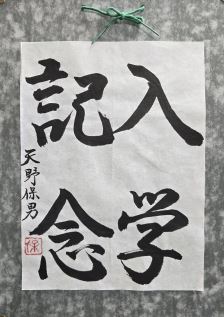 入学
記念
天野保男
保